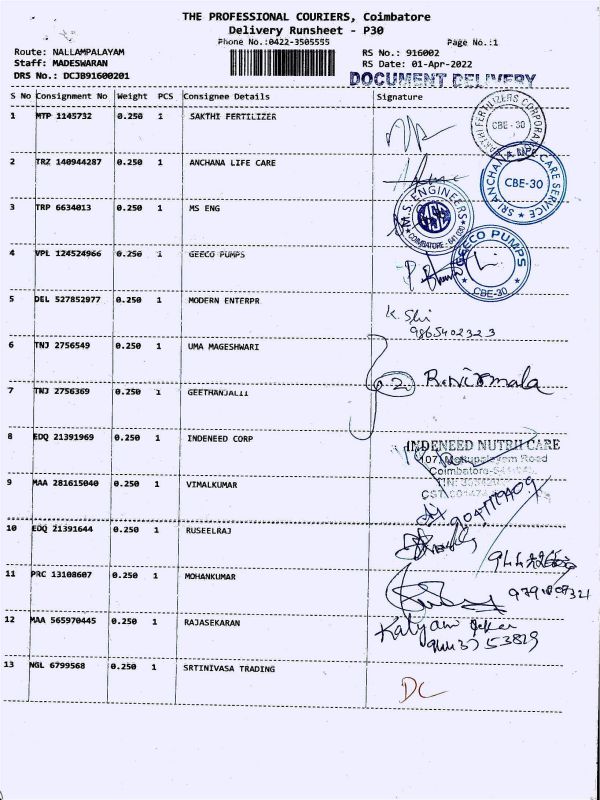 THE PROFESSIONAL COURIERS, Coimbatore
Delivery Runsheet - P30
Phone No.:0422-3505555 Page No.:1
Route: NALLAMPALAYAM RS No.: 916002
Staff: MADESWARAN RS Date: 01-Apr-2022
DRS No.: DCJB91600201 DOCUMENT DELIVERY
S No Consignment No Weight PCS Consignee Details Signature
1 MTP 1145732 0.250 1 SAKTHI FERTILIZER
SAKTHI FERTILIZERS CORPORA
CBE - 30
2 TRZ 140944287 0.250 1 ANCHANA LIFE CARE
SRI ANCHANA CARE SERVICE
CBE-30
3 TRP 6634013 0.250 1 MS ENG
M.S. ENGINEERS
COIMBATORE
4 VPL 124524966 0.250 1 GEECO PUMPS
GEECO PUMPS
CBE-30
5 DEL 527852977 0.250 1 MODERN ENTERPR
6 TNJ 2756549 0.250 1 UMA MAGESHWARI
2 R.Nirmala
7 TNJ 2756369 0.250 1 GEETHANJALII
8 EDQ 21391969 0.250 1 INDENEED CORP
INDENEED NUTRII CARE
107, Mettupalayam Road
Coimbatore
9 MAA 281615040 0.250 1 VIMALKUMAR
10 EDQ 21391644 0.250 1 RUSEELRAJ
11 PRC 13108607 0.250 1 MOHANKUMAR
12 MAA 565970445 0.250 1 RAJASEKARAN
Kalyani
13 NGL 6799568 0.250 1 SRTINIVASA TRADING
DC